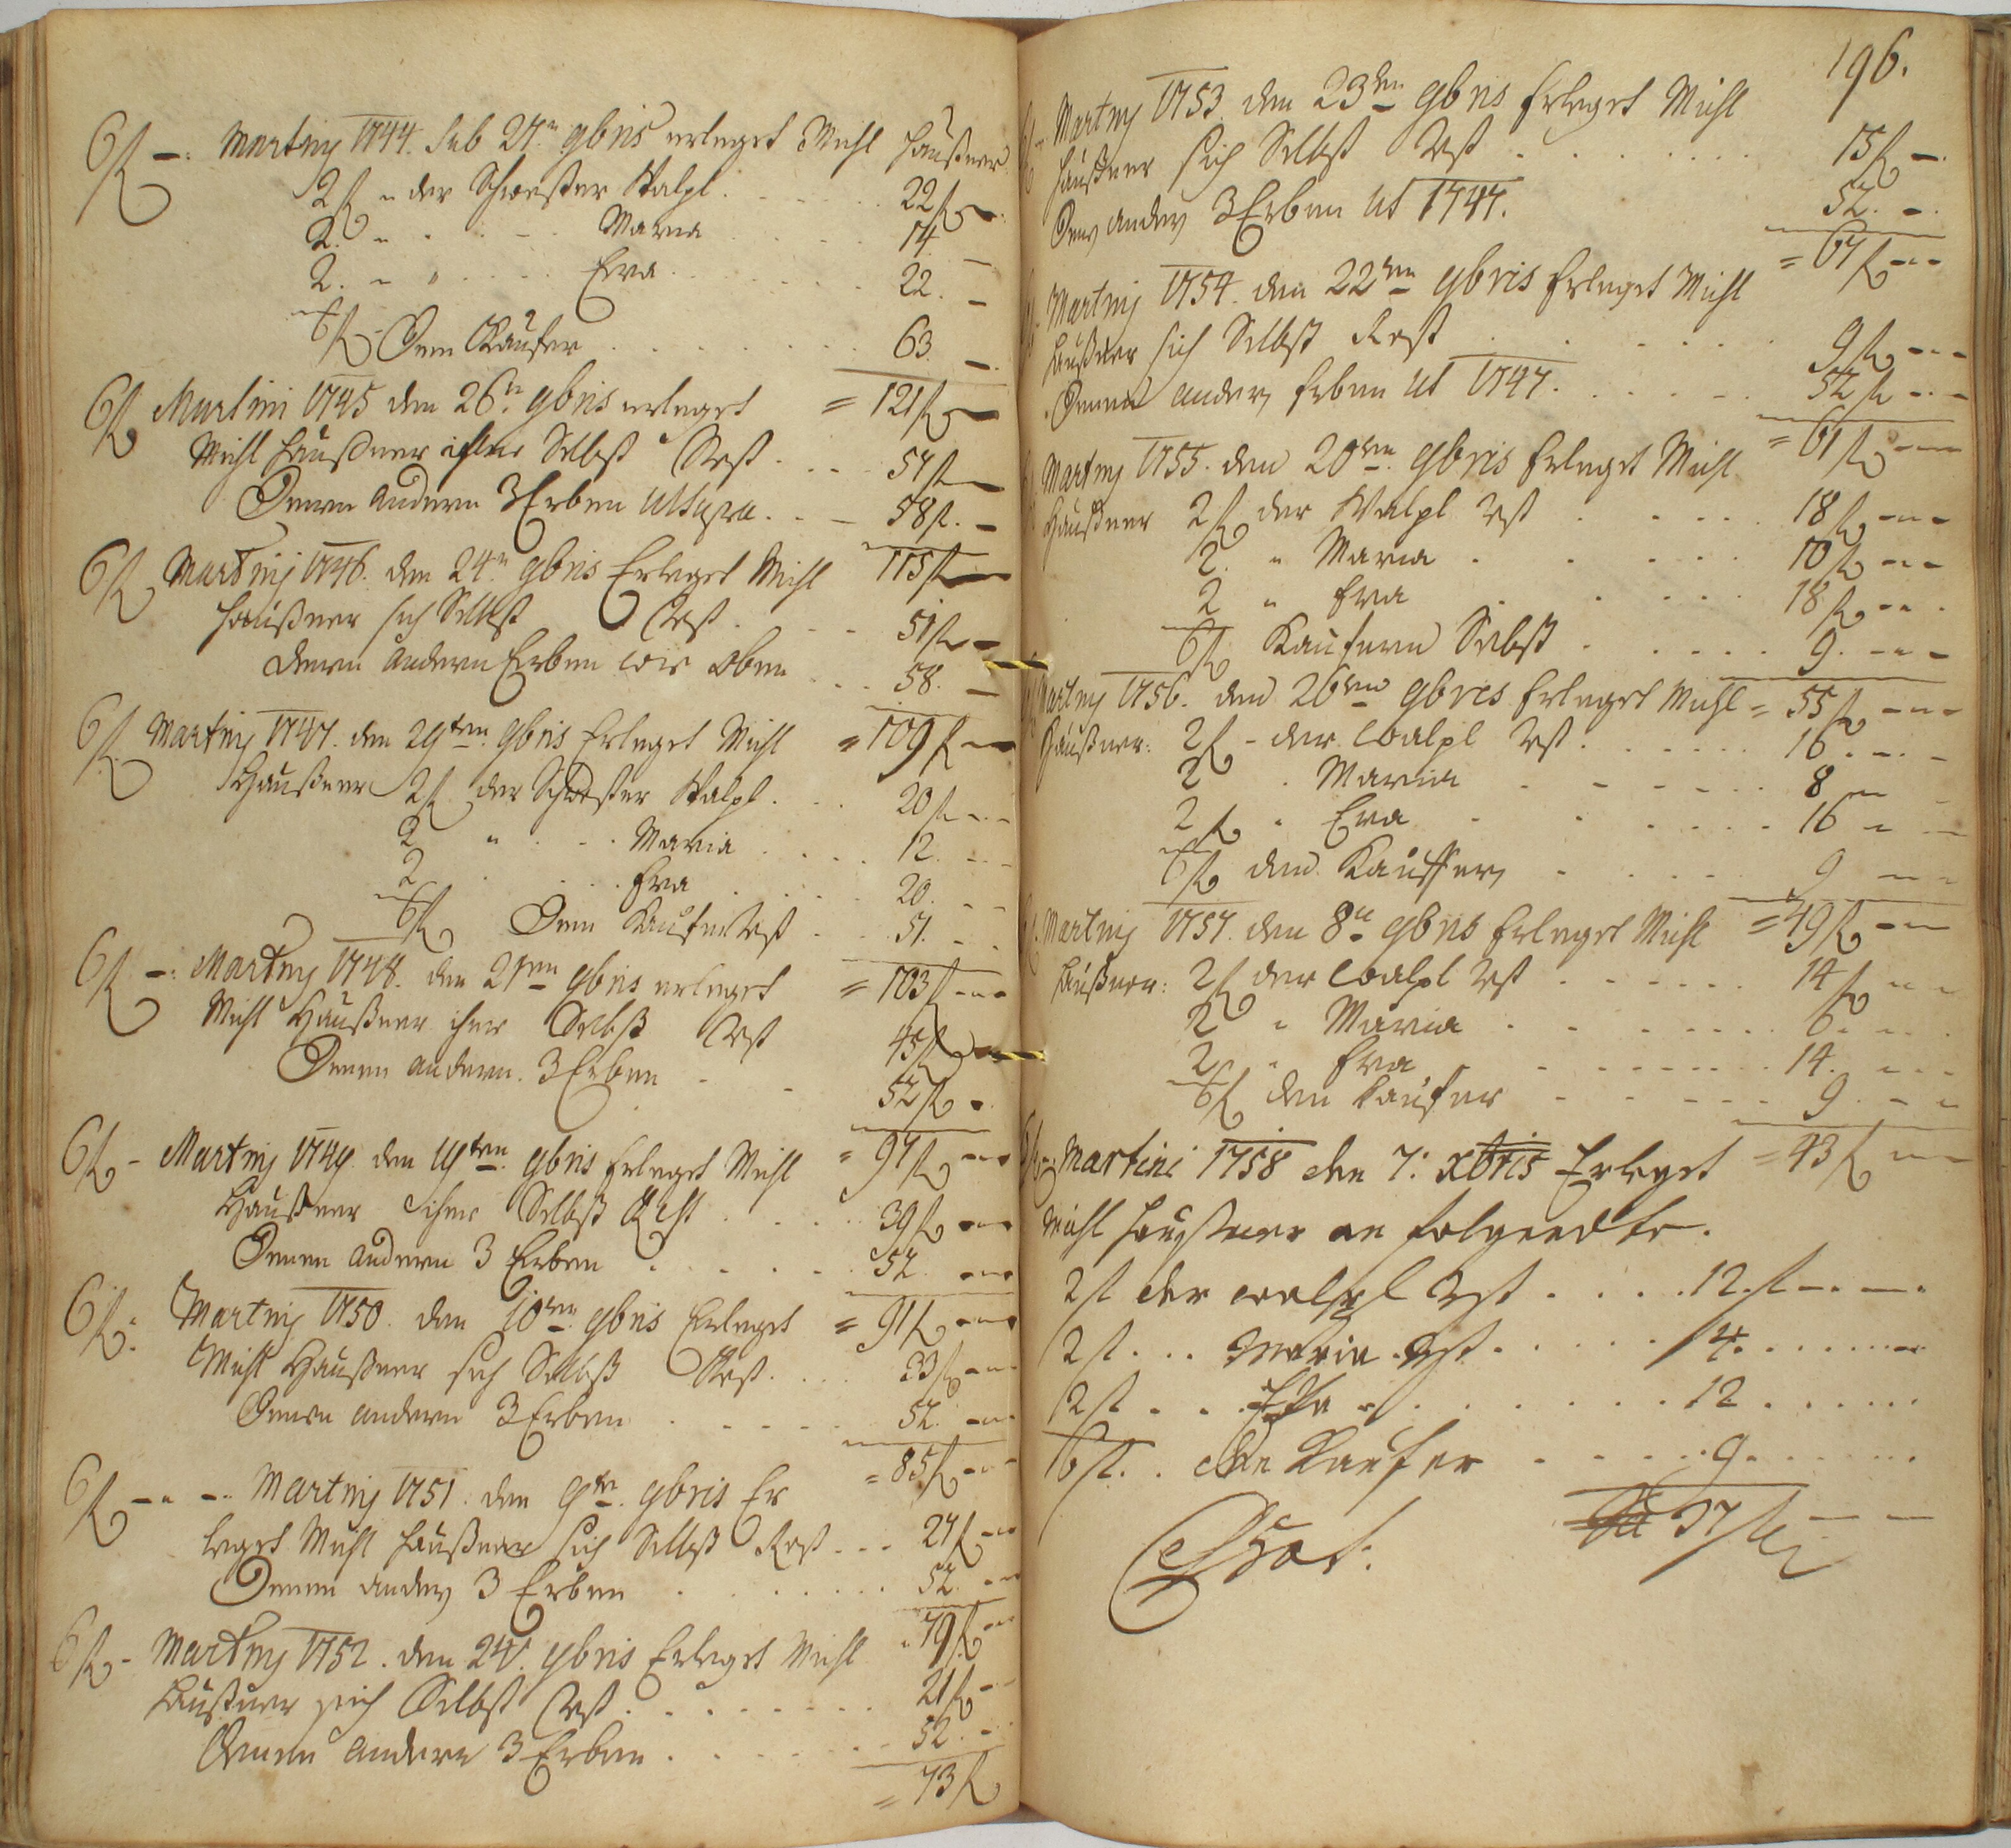 6 f —: Martiny 1744. sub 27.n 9bris erleget Michl Haußner
2 f " der Schwester Walpl. . . . 22 f —
2. " . . . Maria . . . 14. —
2. " " . . . Eva . . . 22. —
6 f Dem Kaufer . . . 63. —
= 121 f —
6 f Martini 1745 den 26.n 9bris erleget
Michl Haußner ihme Selbst Rest . . . 57 f —
Denen andern 3 Erben ut supra . . — 58 f. —
115 f —
6 f Martinij 1746. den 24.n 9bris Erleget Michl
Haußner sich Selbst Rest . . . 51 f —
denen andern Erben wie oben . . . 58. —
= 109 f —
6 f. Martinij 1747. den 29ten. 9bris Erleget Michl
Haußner 2 f der Schwester Walpl. . . 20 f — —
2 " . . . Maria . . . 12. — —
2 . . . Eva . . . 20. — —
6 f Dem Kaufer Rest . . . 51. — —
= 103 f — —
6 f —: Martiny 1748. den 21ten 9bris erleget
Michl Haußner ihme Selbst Rest 45 f —
Denen andern. 3 Erben - - 52 f —
= 97 f — —
6 f - Martinij 1749. den 19ten. 9bris Erleget Michl
Haußner ihme Selbst Rest . . . 39 f — —
Denen andern 3 Erben . . . 52. — —
= 91 f — —
6 f: Martinij 1750. den 10ten. 9bris Erleget
Michl Haußner sich Selbst Rest . . . 33 f — —
Denen andern 3 Erben . . . 52. — —
= 85 f — —
6 f — — Martinij 1751. den 9ten. 9bris Er
leget Michl Haußner sich Selbst Rest . . . 27 f — —
Denen andern 3 Erben . . . 52. — —
79 f — —
6 f - Martinij 1752. den 24. 9bris Erleget Michl
Haußner sich Selbst Rest . . . 21 f — —
Denen andern 3 Erben . . . 52. —
= 73 f
196.
Martiny 1753. den 23ten 9bris Erleget Michl
Haußner sich Selbst Rest . . . 15 f —.
Denen andern 3 Erben ut 1747. 52. —.
= 67 f — —
Martinij 1754. den 22ten 9bris Erleget Michl
Haußner sich Selbst Rest . . . 9 f — —
Denen andern Erben ut 1747. . . . 52 f — —
= 61 f — —
Martinij 1755. den 20ten. 9bris Erleget Michl
Haußner 2 f der Walpl Rest . . . 18 f — —
2. " Maria . . . 10 f — —
2 " Eva . . . 18 f — —
6 f Kaufern Selbst . . . 9. — —
= 55 f — —
Martiny 1756. den 26ten 9bris Erleget Michl
Haußner: 2 f - der Walpl Rest . . . 16. — —
2 . Maria . . . 8 — —
2 f . Eva . . . 16 — —
6 f dem Kauffer . . . 9 — —
= 49 f — —
Martinij 1757. den 8ten 9bris Erleget Michl
Haußner: 2 f der Walpl Rest . . . 14 f — —
2 " Maria . . . 6. — —
2 " Eva . . . 14. — —
6 f dem Kaufer . . . 9. — —
= 43 f — —
Martini 1758 den 7: xbris Erleget
Michl Haußner an folgendte.
2 f der Walpl Rst . . . 12. f — —
2 f. . . Maria Rst . . . 4. . . .
2 f . . . Eva . . . 12 . . .
6 f. . den Kaufer . . . 9. . . .
37 f — —